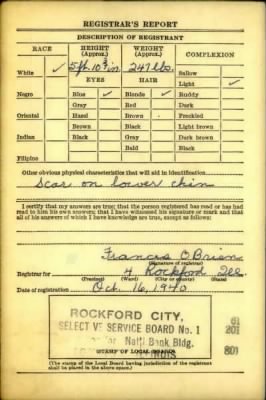 REGISTRAR'S REPORT
DESCRIPTION OF REGISTRANT
RACE HEIGHT (Approx.) WEIGHT (Approx.) COMPLEXION
White ✓ 5 ft. 10 3/4 in. 247 lbs. Sallow
EYES HAIR Light ✓
Negro Blue ✓ Blonde ✓ Ruddy
Gray Red Dark
Oriental Hazel Brown Freckled
Brown Black Light brown
Indian Black Gray Dark brown
Bald Black
Filipino
Other obvious physical characteristics that will aid in identification
Scar on lower chin
I certify that my answers are true; that the person registered has read or has had
read to him his own answers; that I have witnessed his signature or mark and that
all of his answers of which I have knowledge are true, except as follows:
Francis O'Brien
(Signature of registrar)
Registrar for 4 Rockford Ill.
(Precinct) (Ward) (City or county) (State)
Date of registration Oct. 16, 1940
ROCKFORD CITY,
SELECTIVE SERVICE BOARD No. 1
Nat'l Bank Bldg.
61
201
801
STAMP OF LOCAL BOARD
(The stamp of the Local Board having jurisdiction of the registrant
shall be placed in the above space.)